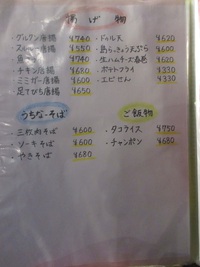 揚げ物
・グルクン唐揚 ¥740
¥550
¥740
・チキン唐揚 ¥680
・ミミガー唐揚 ¥600
・足てびち唐揚 ¥650
・ドゥル天 ¥620
・島らっきょう天ぷら ¥600
・生ハムチーズ春巻 ¥620
・ポテトフライ ¥330
・エビせん ¥330
うちなーそば
・三枚肉そば ¥600
・ソーキそば ¥600
・やきそば ¥680
ご飯物
・タコライス ¥750
・チャンポン ¥680